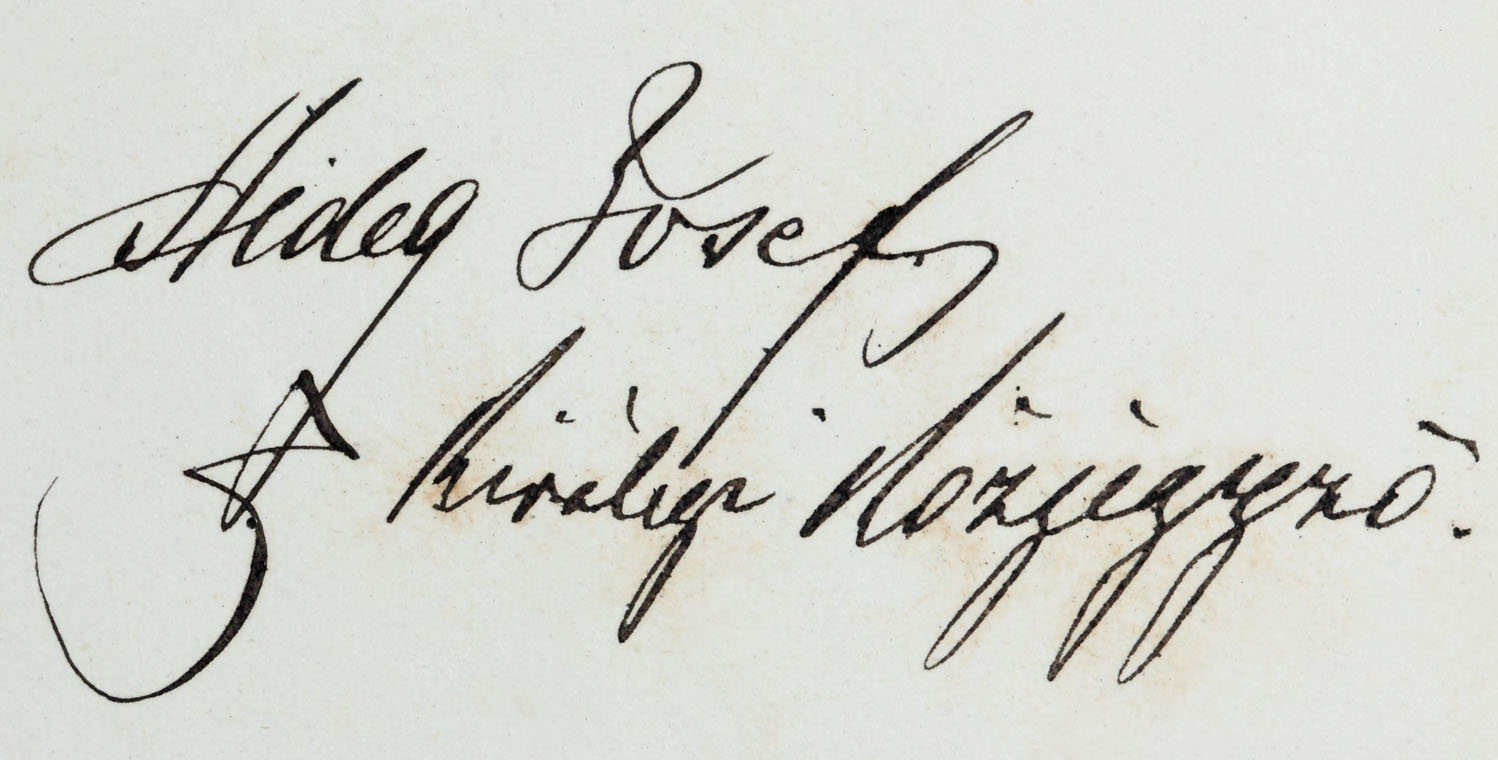 Hideg Josef
Királyi Közjegyző.